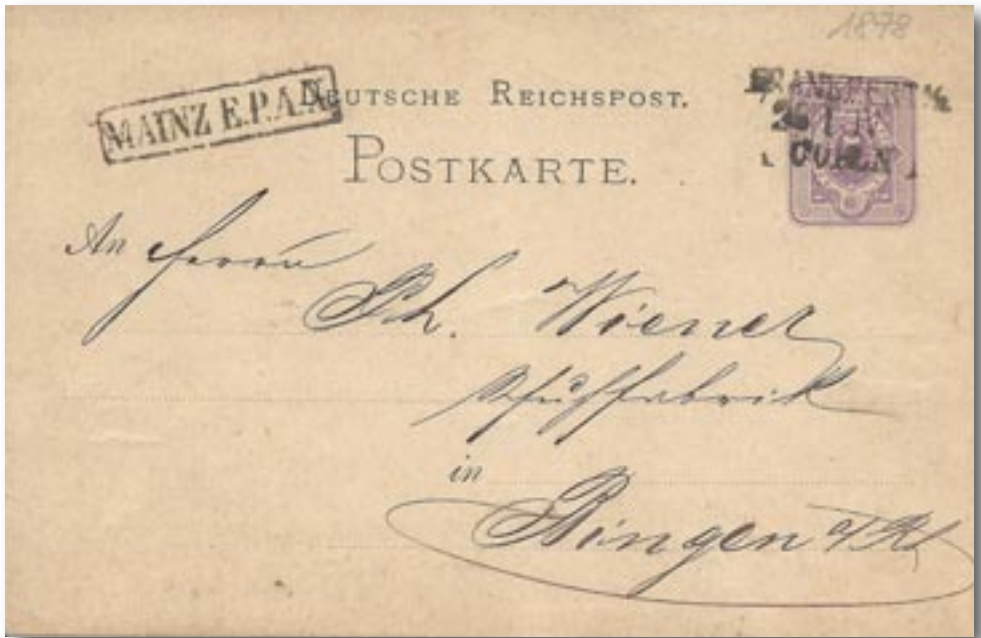 1878
MAINZ E.P.A.N
DEUTSCHE REICHSPOST.
POSTKARTE.
An Herrn
Ph. Wiener
Schuhfabrik
in
Bingen a/Rh